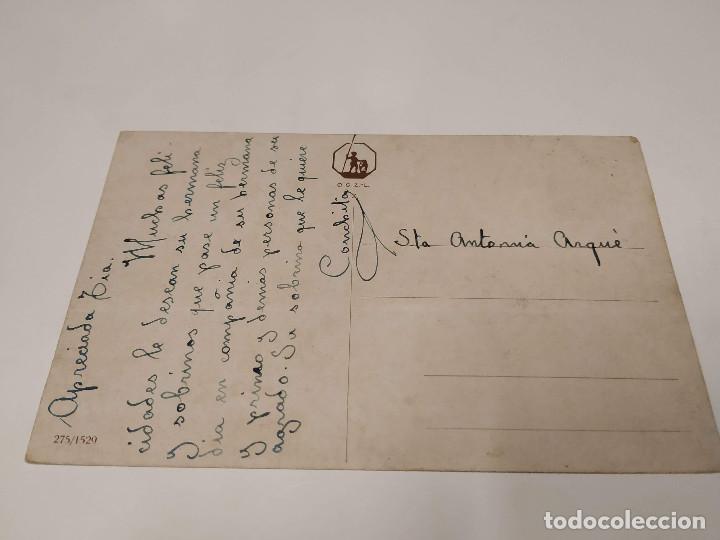 Apreciada Tia.
Muchas feli-
cidades le desean su hermana
y sobrinos que pase un feliz
dia en compañia de su hermana
y primo y demas personas de su
agrado. Su sobrina que le quiere
Conchita
275/1529
Sta Antonia Arqué
todocoleccion
todocoleccion.net